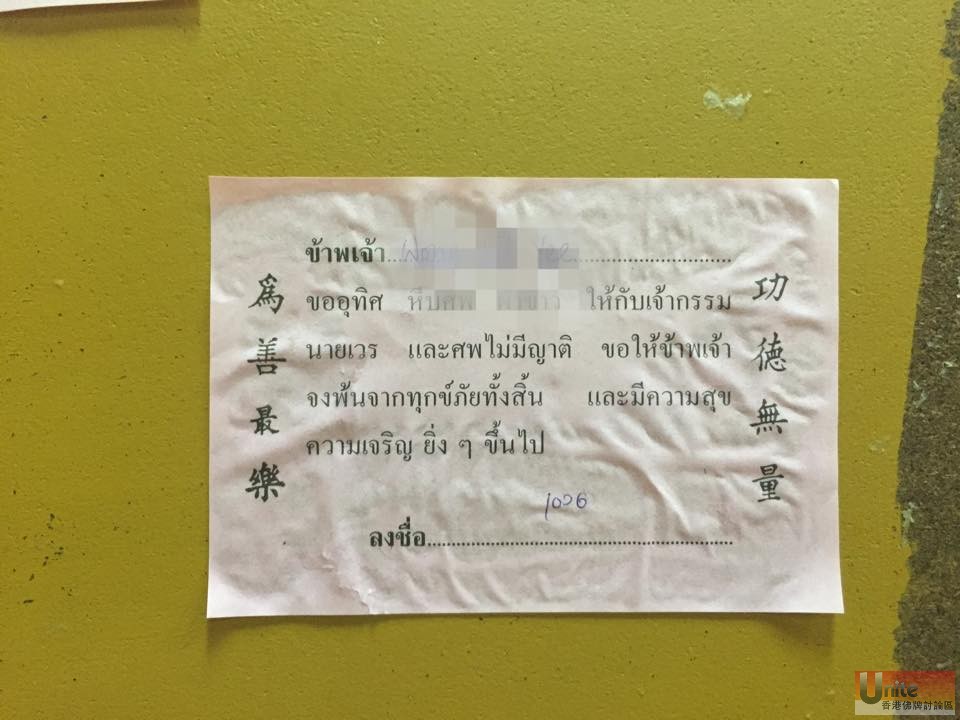 ข้าพเจ้า
ขออุทิศ หีบศพ ผ้าขาว ให้กับเจ้ากรรม
นายเวร และศพไม่มีญาติ ขอให้ข้าพเจ้า
จงพ้นจากทุกข์ภัยทั้งสิ้น และมีความสุข
ความเจริญ ยิ่ง ๆ ขึ้นไป
1006
ลงชื่อ
為善最樂
功德無量
Unite
香港佛牌討論區